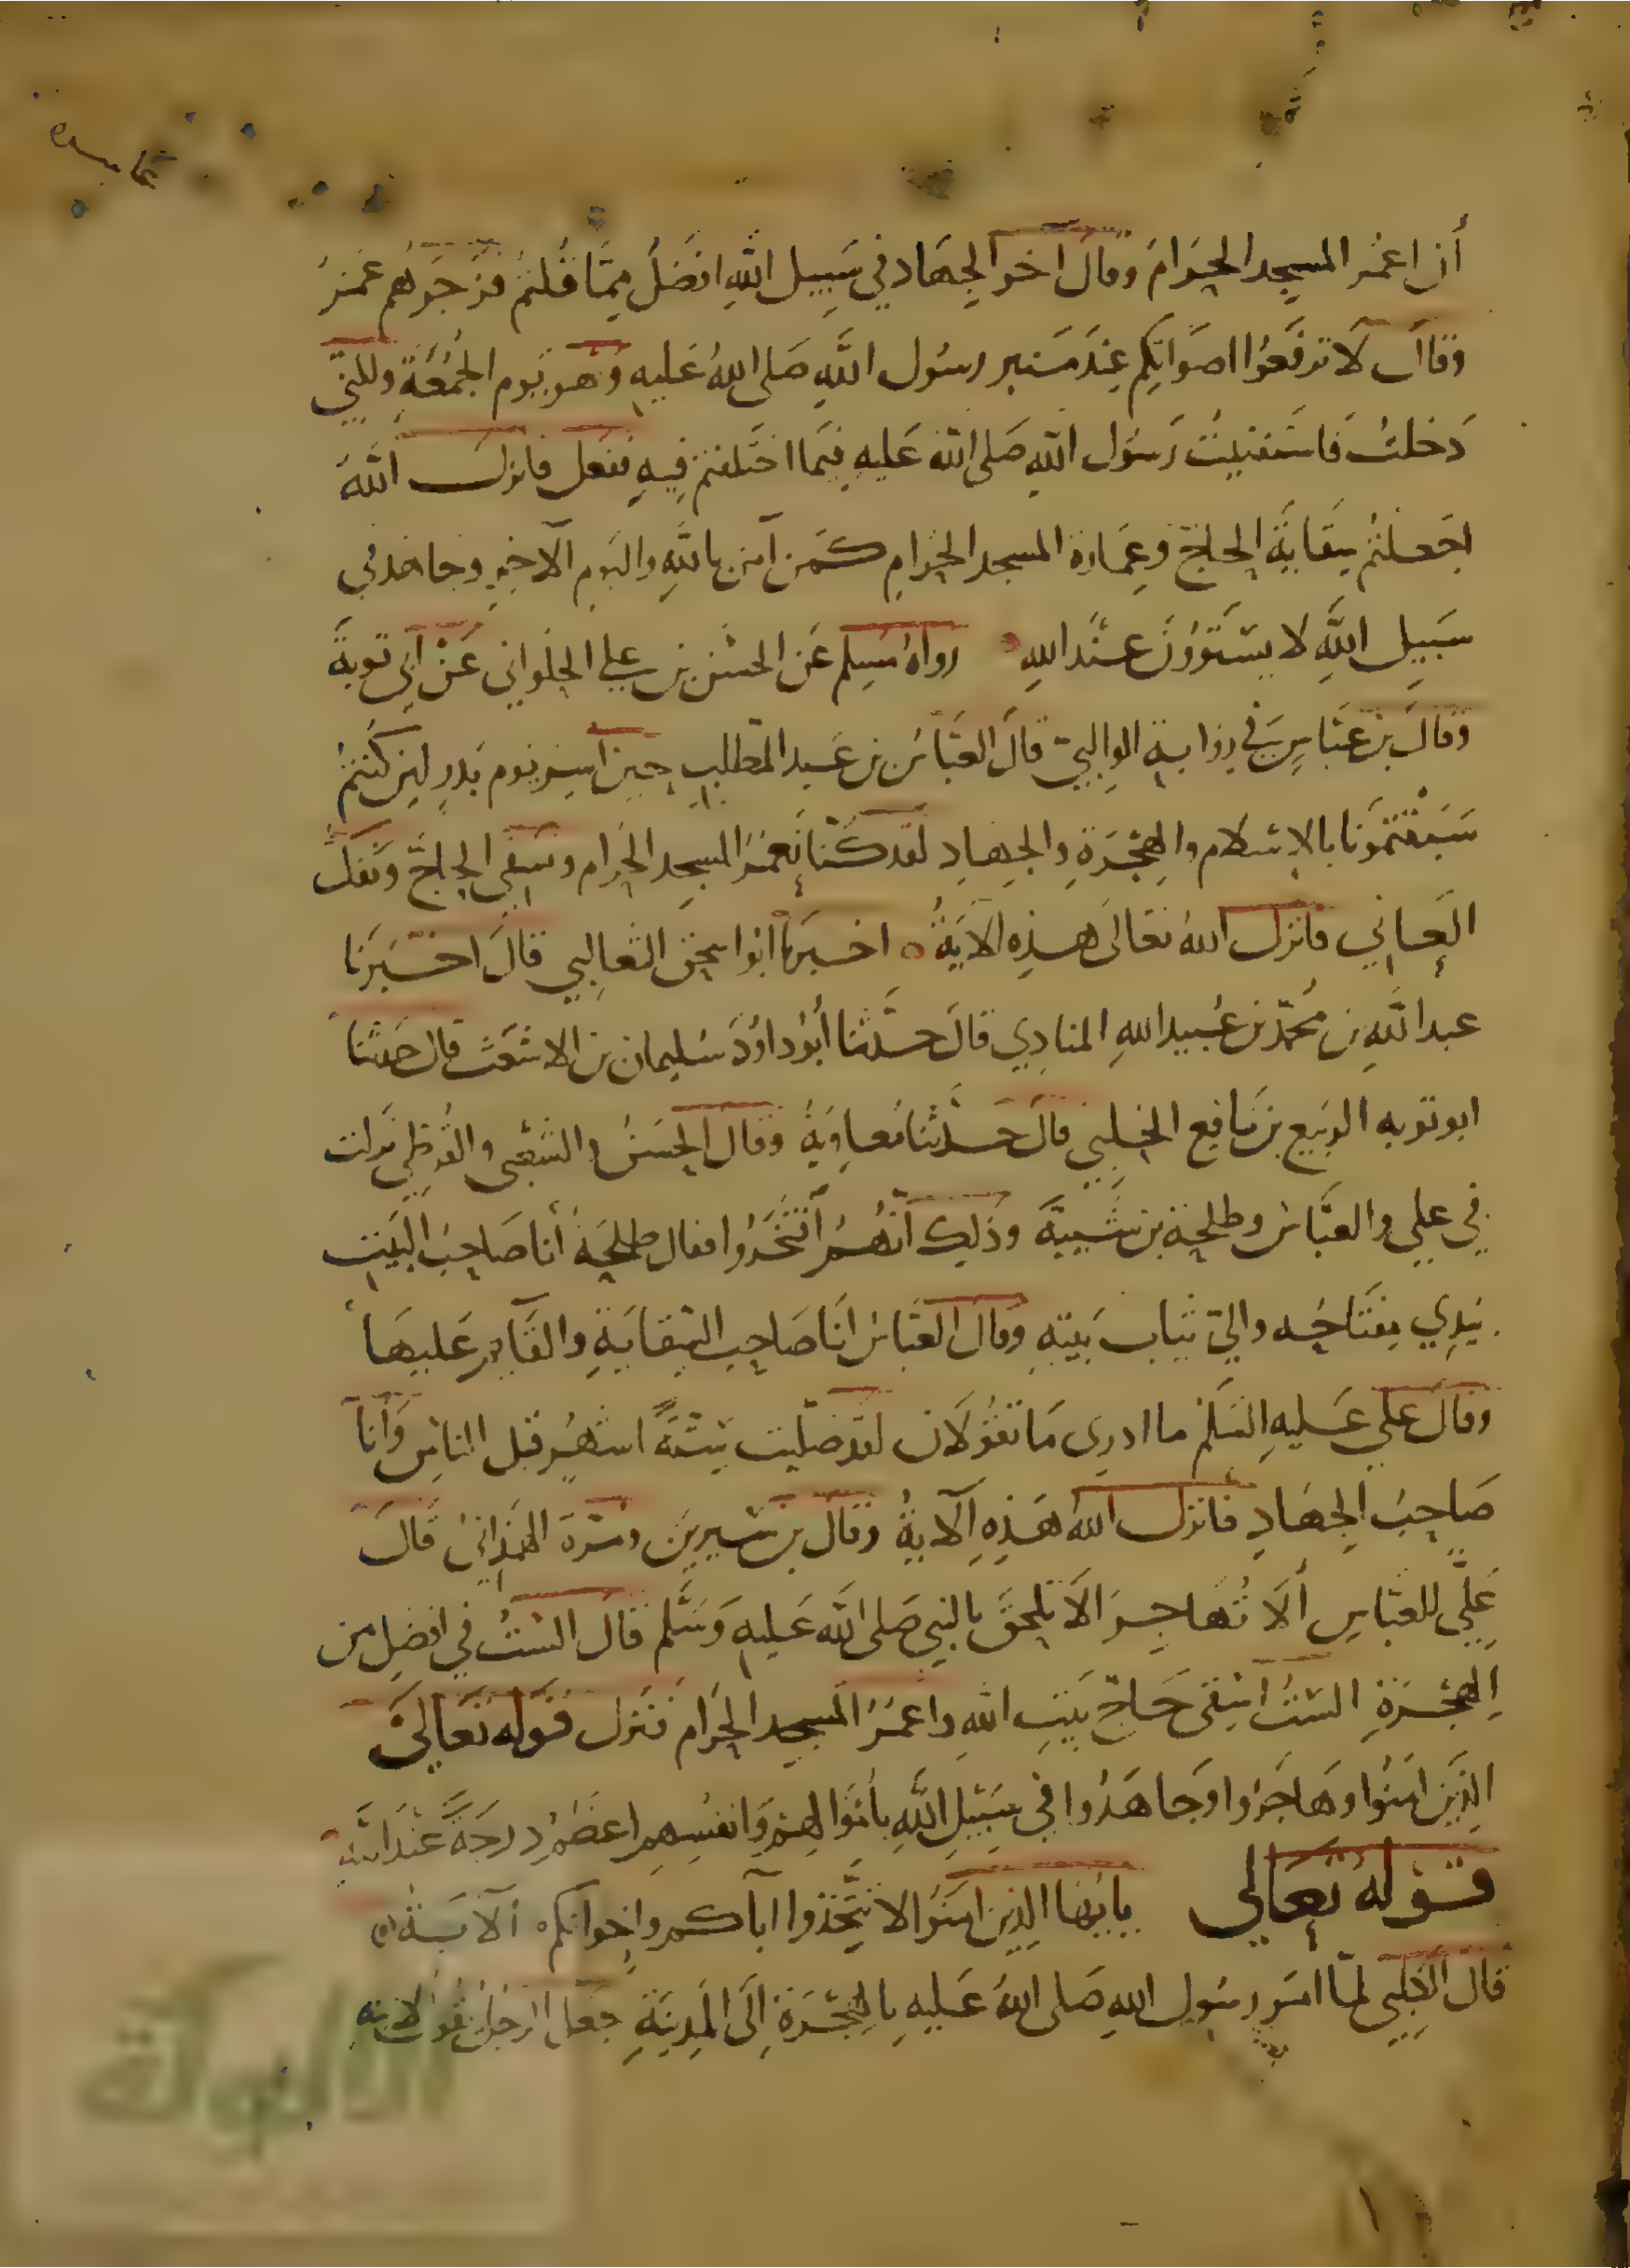 أن اعمر المسجد الحرام وقال اخر الجهاد في سبيل الله افضل مما قلتم فزجرهم عمر
وقال لا ترفعوا اصواتكم عند منبر رسول الله صلى الله عليه وهو يوم الجمعة ولكني
دخلت فاستفتيت رسول الله صلى الله عليه فيما اختلفتم فيه ففعل فانزل الله
اجعلتم سقاية الحاج وعمارة المسجد الحرام كمن آمن بالله واليوم الآخر وجاهد في
سبيل الله لا يستوون عند الله رواه مسلم عن الحسن بن علي الحلواني عن أبي توبة
وقال بن عباس في رواية الوالبي قال العباس بن عبد المطلب حين اسر يوم بدر لين كنتم
سبقتمونا بالإسلام والهجرة والجهاد لقد كنا نعمر المسجد الحرام ونسقي الحاج ونفك
العاني فانزل الله تعالى هذه الآية اخبرنا ابو اسحق الثعالبي قال اخبرنا
عبد الله بن محمد بن عبيد الله المنادي قال حدثنا أبو داود سليمان بن الاشعث قال حدثنا
ابو توبه الربيع بن نافع الحلبي قال حدثنا معاوية وقال الحسن والشعبي والقرظي نزلت
في علي والعباس وطلحة بن شيبة وذلك أنهم افتخروا فقال طلحة أنا صاحب البيت
بيدي مفتاحه والي ثياب بيته وقال العباس انا صاحب السقاية والقايم عليها
وقال علي عليه السلم ما ادرى ما تقولان لقد صليت ستة اشهر قبل الناس وأنا
صاحب الجهاد فانزل الله هذه الآية وقال بن سيرين ومرة الهمذاني قال
علي للعباس ألا تهاجر ألا تلحق بالنبي صلى الله عليه وسلم فقال الست في افضل من
الهجرة الست اسقى حاج بيت الله واعمر المسجد الحرام فنزل قوله تعالى
الذين امنوا وهاجروا وجاهدوا في سبيل الله بأموالهم وانفسهم اعظم درجة عند الله
قوله تعالى يايها الذين امنوا لا تتخذوا اباكم واخوانكم الآية
قال الكلبي لما امر رسول الله صلى الله عليه بالهجرة إلى المدينة جعل الرجل يقول لابيه
الألوكة